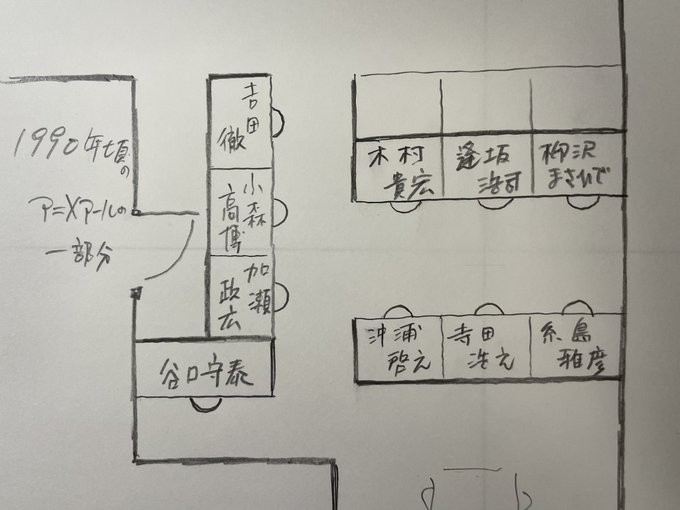 1990年頃の
アニメアールの
一部分
吉田
徹
小森
高博
加瀬
政広
谷口守泰
木村
貴宏
逢坂
浩司
柳沢
まさひで
沖浦
啓之
寺田
浩之
糸島
雅彦